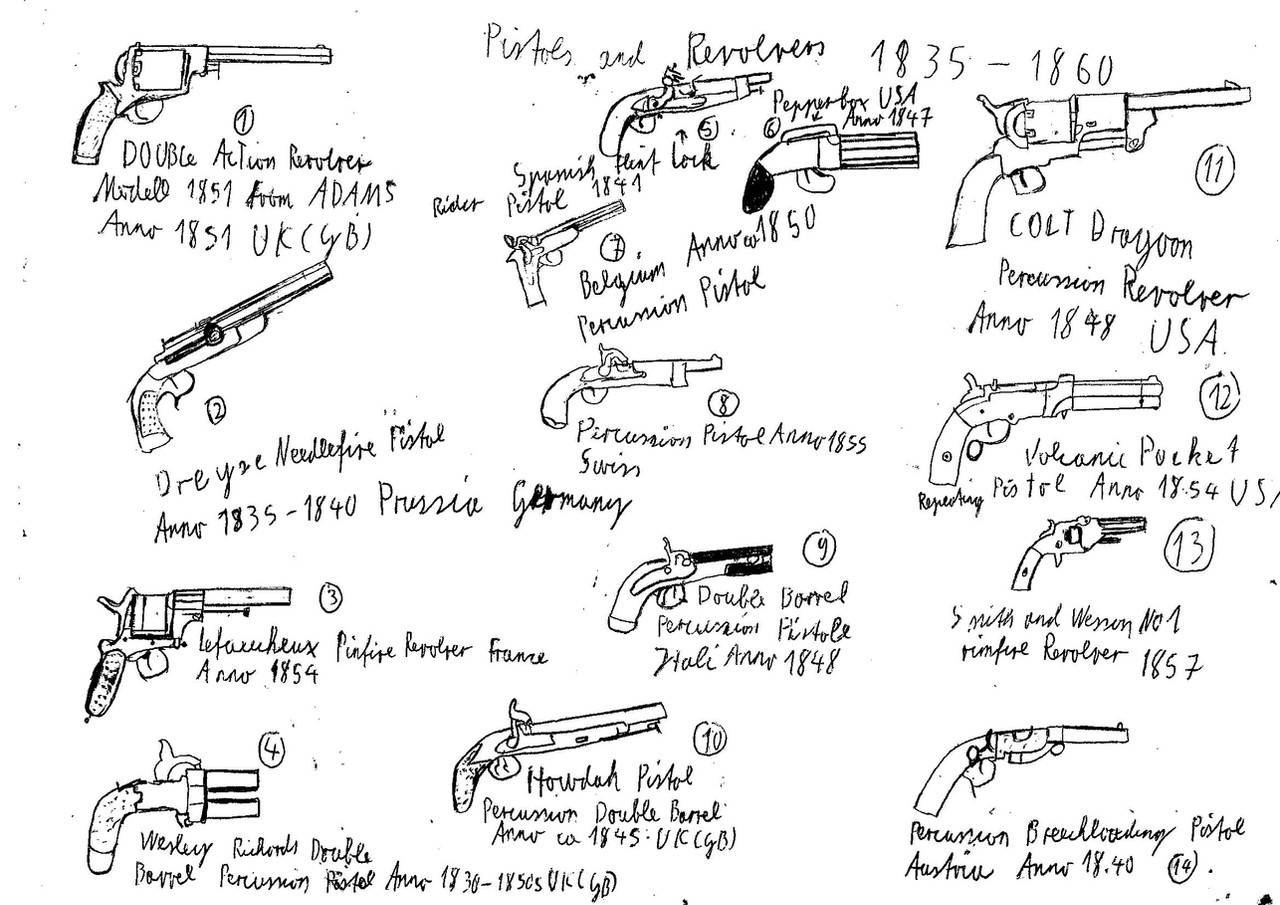 Pistols and Revolvers 1835 - 1860
①
DOUBLE Action Revolver
Modell 1851 from ADAMS
Anno 1851 UK (GB)
②
Dreyse Needlefire Pistol
Anno 1835-1840 Prussia Germany
③
Lefaucheux Pinfire Revolver France
Anno 1854
④
Wesley Richards Double
Barrel Percussion Pistol Anno 1830-1850s UK (GB)
⑤
Spanish flint lock
Rider Pistol 1841
⑥
Pepperbox USA
Anno 1847
⑦
Belgium Anno ca 1850
Percussion Pistol
⑧
Percussion Pistol Anno 1855
Swiss
⑨
Double Barrel
Percussion Pistole
Itali Anno 1848
⑩
Howdah Pistol
Percussion Double Barrel
Anno ca 1845. UK (GB)
⑪
COLT Dragoon
Percussion Revolver
Anno 1848 USA
⑫
Volcanic Pocket
Repeating Pistol Anno 18.54 USA
⑬
Smith and Wesson No 1
rimfire Revolver 1857
Percussion Breechloading Pistol
Austria Anno 18.40 ⑭.